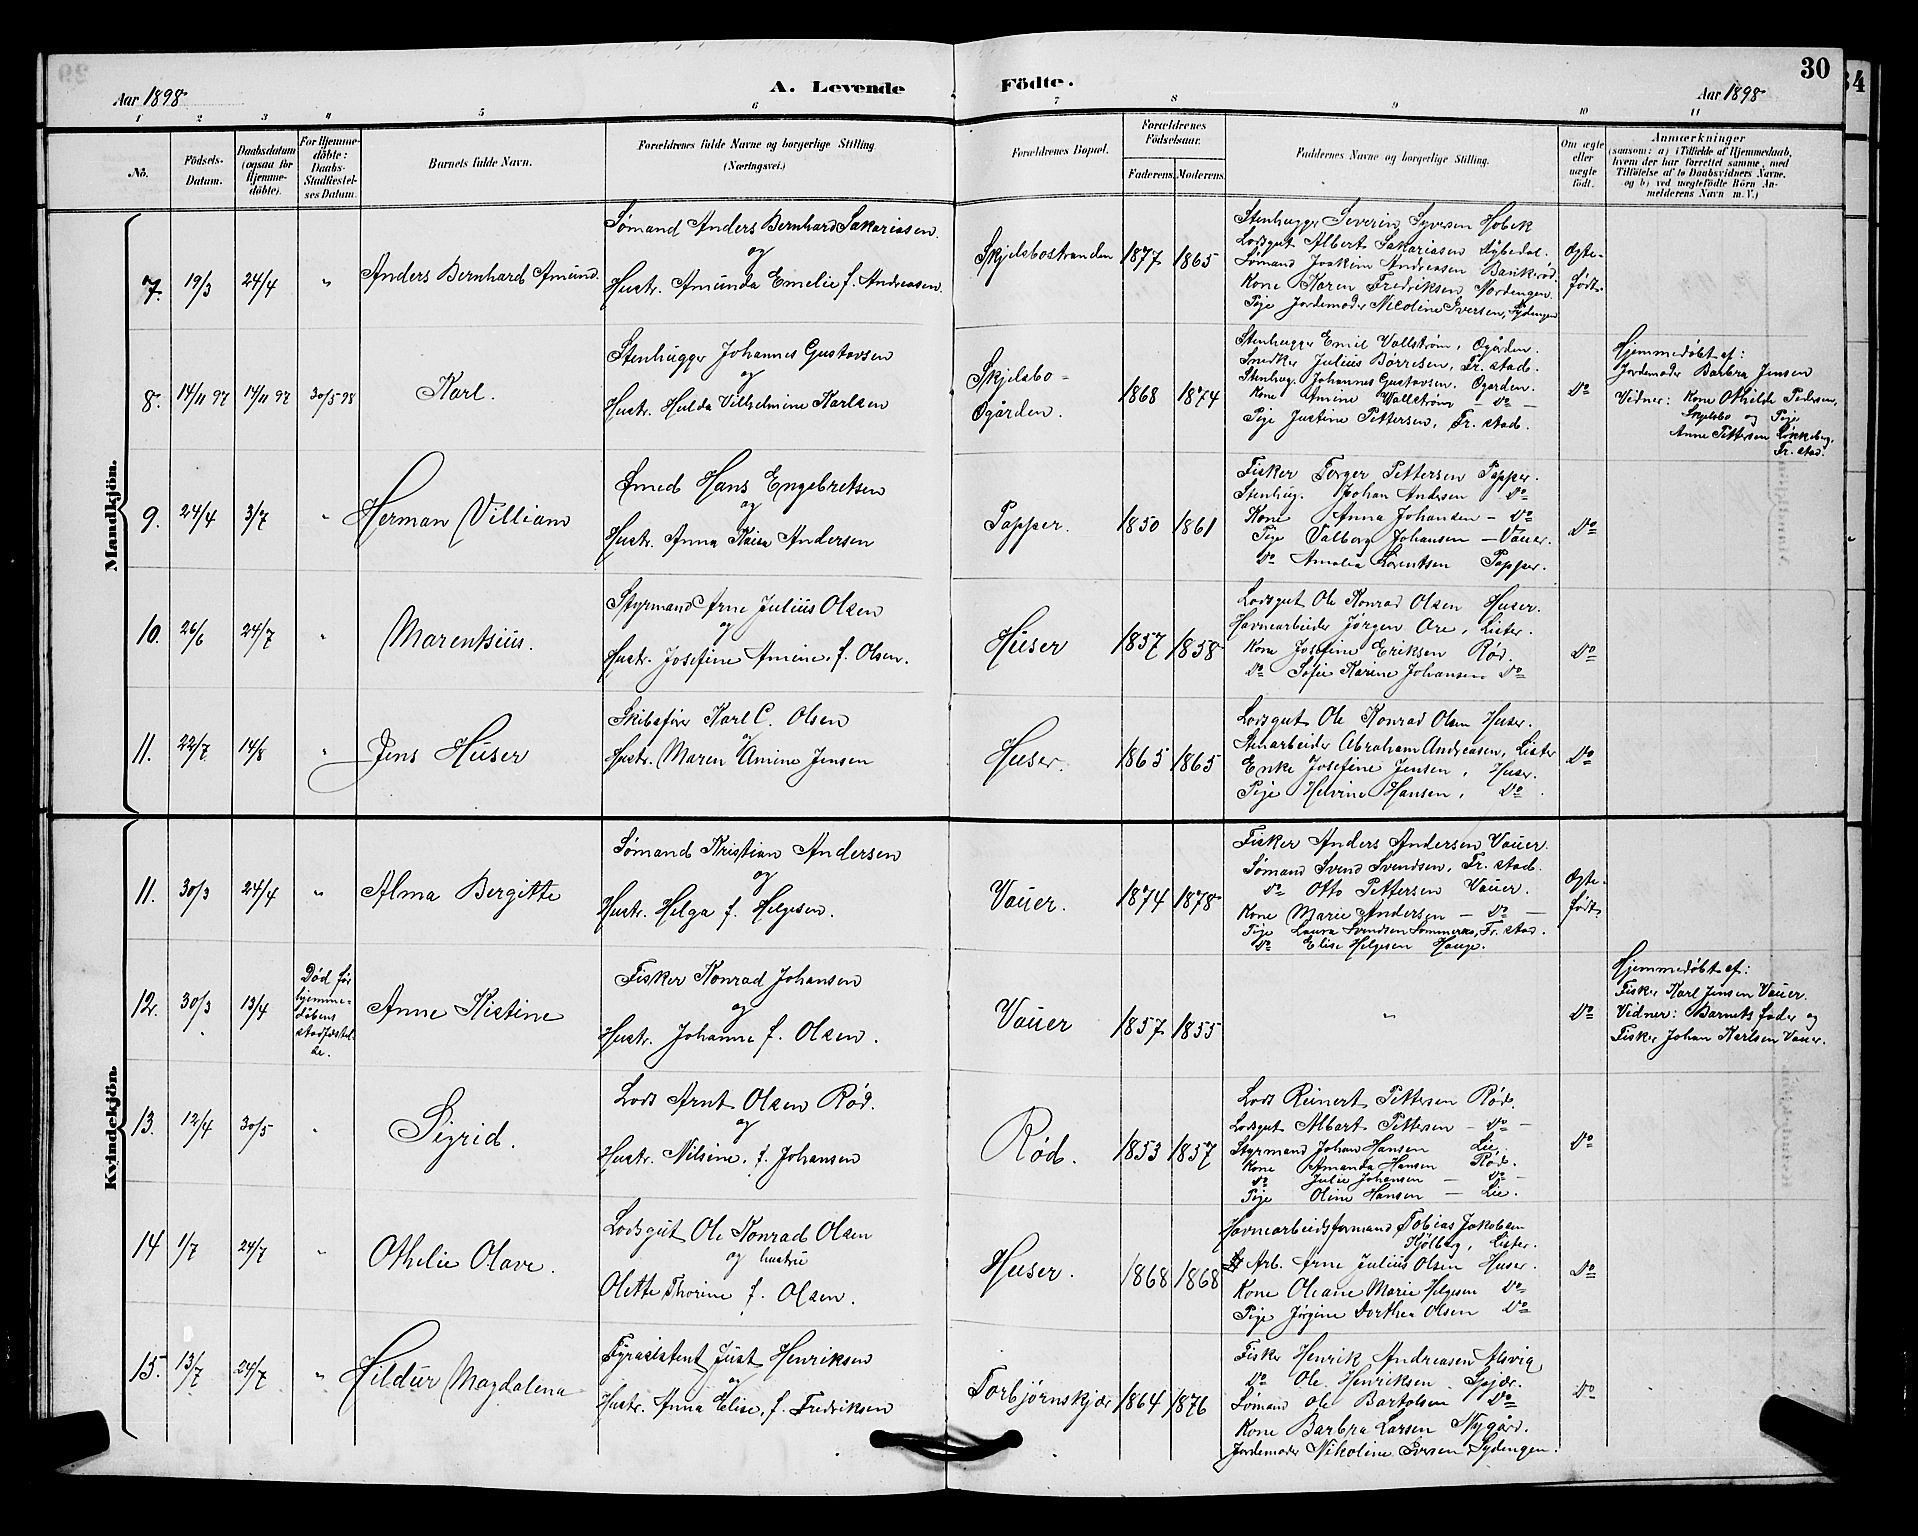 30
Aar 1898
A. Levende Födte.
Aar 1898
1 2 3 4 5 6 7 8 9 10 11
No.
Födsels-Datum.
Daabsdatum (ogsaa for Hjemme-döbte).
For Hjemme-döbte: Daabs-Stadfæstelses Datum.
Barnets fulde Navn.
Forældrenes fulde Navne og borgerlige Stilling (Næringsvei.)
Forældrenes Bopæl.
Forældrenes Födselsaar.
Faderens. Moderens.
Faddernes Navne og borgerlige Stilling.
Om ægte eller uægte födt.
Anmærkninger
(saasom: a) i Tilfælde af Hjemmedaab,
hvem der har forrettet samme, med
Tilföielse af to Daabsvidners Navne,
og b) ved uægtefödte Börn An-
melderens Navn m. V.)
Mandkjön.
7. 19/3 24/4 " Anders Bernhard Amund.
Sømand Anders Bernhard Sakariasen
og
Hustr. Amunda Emelie f. Andreasen.
Skjelsbostranden 1877 1865
Stenhugger Severin Syversen Hobek
Lodsgut Albert Sakariasen Dybedal.
Sømand Joakim Andreasen Bankerød
Kone Karen Fredriksen Nordengen.
Pige Jordemoder Nicoline Iversen, Sydengen
Ægte-
født
8. 14/11 97 14/11 97 30/5 98 Karl.
Stenhugger Johannes Gustavsen
og
Hustr. Hulda Vilhelmine Karlsen
Skjelsbo-
Øgården. 1868 1874
Stenhugger Emil Vallstrøm, Øgården.
Snedker Julius Børresen, Fr. stad.
Stenhug. Johannes Gustavsen. Øgården.
Kone Amine Wallstrøm - do -
Pige Justine Pettersen, Fr. stad.
do
Hjemmedøbt af:
Jordemoder Barbra Jensen
Vidner: Kone Othilde Pedersen,
Skjelsbo og Pige
Anne Pettersen Løkkeberg,
Fr. stad.
9. 24/4 3/7 " Herman Villiam
Smed Hans Engebretsen
og
Hustr. Anna Kaisa Andersen
Papper. 1850 1861
Fisker Torger Pettersen Papper.
Stenhug. Johan Andersen do
Kone Anna Johansen - do
Pige Valborg Johansen - Vauer.
do Amalia Lorentsen Papper.
do
10. 26/6 24/7 " Marentsius.
Styrmand Arne Julius Olsen
og
Hustr. Josefine Amine, f. Olsen.
Huser 1857 1858
Lodsgut Ole Konrad Olsen Huser.
Havnearbeider Jørgen Ore, Lister.
Kone Josefine Eriksen Rød.
do Sofie Karine Johansen do
do
11. 22/7 14/8 " Jens Huser
Skibsfører Karl C. Olsen
og
Hustr. Maren Amine Jensen
Huser. 1865 1865
Lodsgut Ole Konrad Olsen Huser.
Stenarbeider Abraham Andreasen, Lister
Enke Josefine Jensen, Huser.
Pige Helvine Hansen, do.
do
Kvindekjön.
11. 30/3 24/4 " Alma Bergitte
Sømand Kristian Andersen
og
Hustr. Helga f. Helgesen.
Vauer. 1874 1878
Fisker Anders Andersen Vauer.
Sømand Svend Svendsen, Fr. stad.
do Otto Pettersen Vauer.
Kone Marie Andersen - do -
Pige Laura Svendsen Fr. stad.
do Elise Helgesen Hauge.
Ægte-
født
12. 30/3 13/4
Død før
hjemme-
dåbens
stadfæstel-
se.
Anne Kistine
Fisker Konrad Johansen
og
Hustr. Johanne f. Olsen.
Vauer 1857 1855 " do
Hjemmedøbt af:
Fisker Karl Jensen Vauer.
Vidner: Barnets fader og
Fisker Johan Karlsen Vauer.
13. 12/4 30/5 " Sigrid.
Lods Arnt Olsen Rød.
og
Hustr. Nilsine, f. Johansen
Rød. 1853 1857
Lods Reinert Pettersen Rød.
Lodsgut Albert Pettersen - do -
Styrmand Johan Hansen Lie.
Kone Amanda Hansen Rød.
do Julie Johansen - do -
Pige Oline Hansen - Lie.
do
14 1/7 24/7 " Othelie Olave.
Lodsgut Ole Konrad Olsen
og hustru
Olette Thorine f. Olsen.
Huser. 1868 1868
Havnearbeidsformand Tobias Jakobsen
Kjølberg, Lister.
Arb. Arne Julius Olsen Huser.
Kone Oleane Marie Helgesen do
Pige Jørgine Dorthea Olsen do
do
15. 13/7 24/7 " Hildur Magdalena
Fyrassistent Just Henriksen
og
Hustr. Anna Elise, f. Fredriksen
Torbjørnskjær 1864 1876
Fisker Henrik Andreasen Alsvig
do Ole Henriksen Spjær.
Sømand Ole Bartolsen do
Kone Barbra Larsen Nygård.
Jordemoder Nikoline Iversen Sydengen.
do